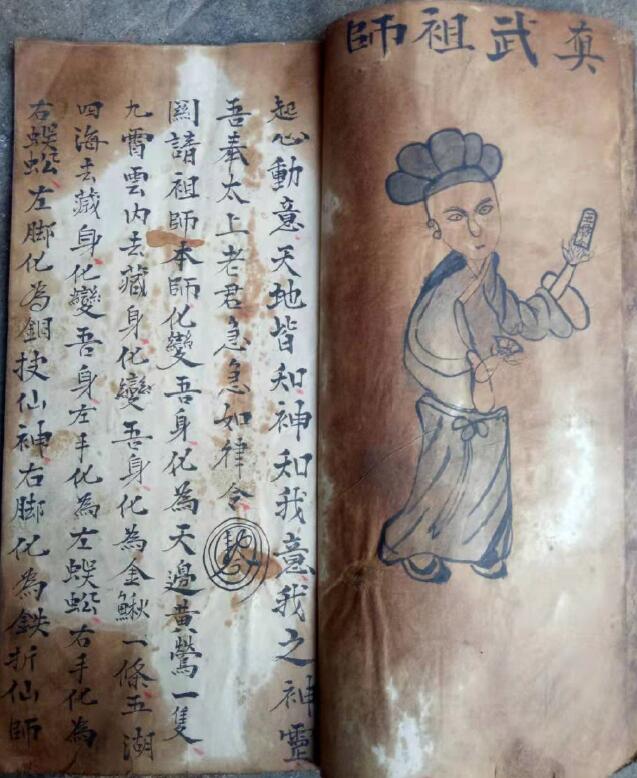 真武祖師
起心動意天地皆知神知我意我之神靈
吾奉太上老君急急如律令
闗請祖師本師化變吾身化為天邊黄鶯一隻
九霄雲内去藏身化變吾身化為金鰍一條五湖
四海去藏身化變吾身左手化為左蜈蚣右手化為
右蜈蚣左脚化為銅技仙神右脚化為鉄折仙師